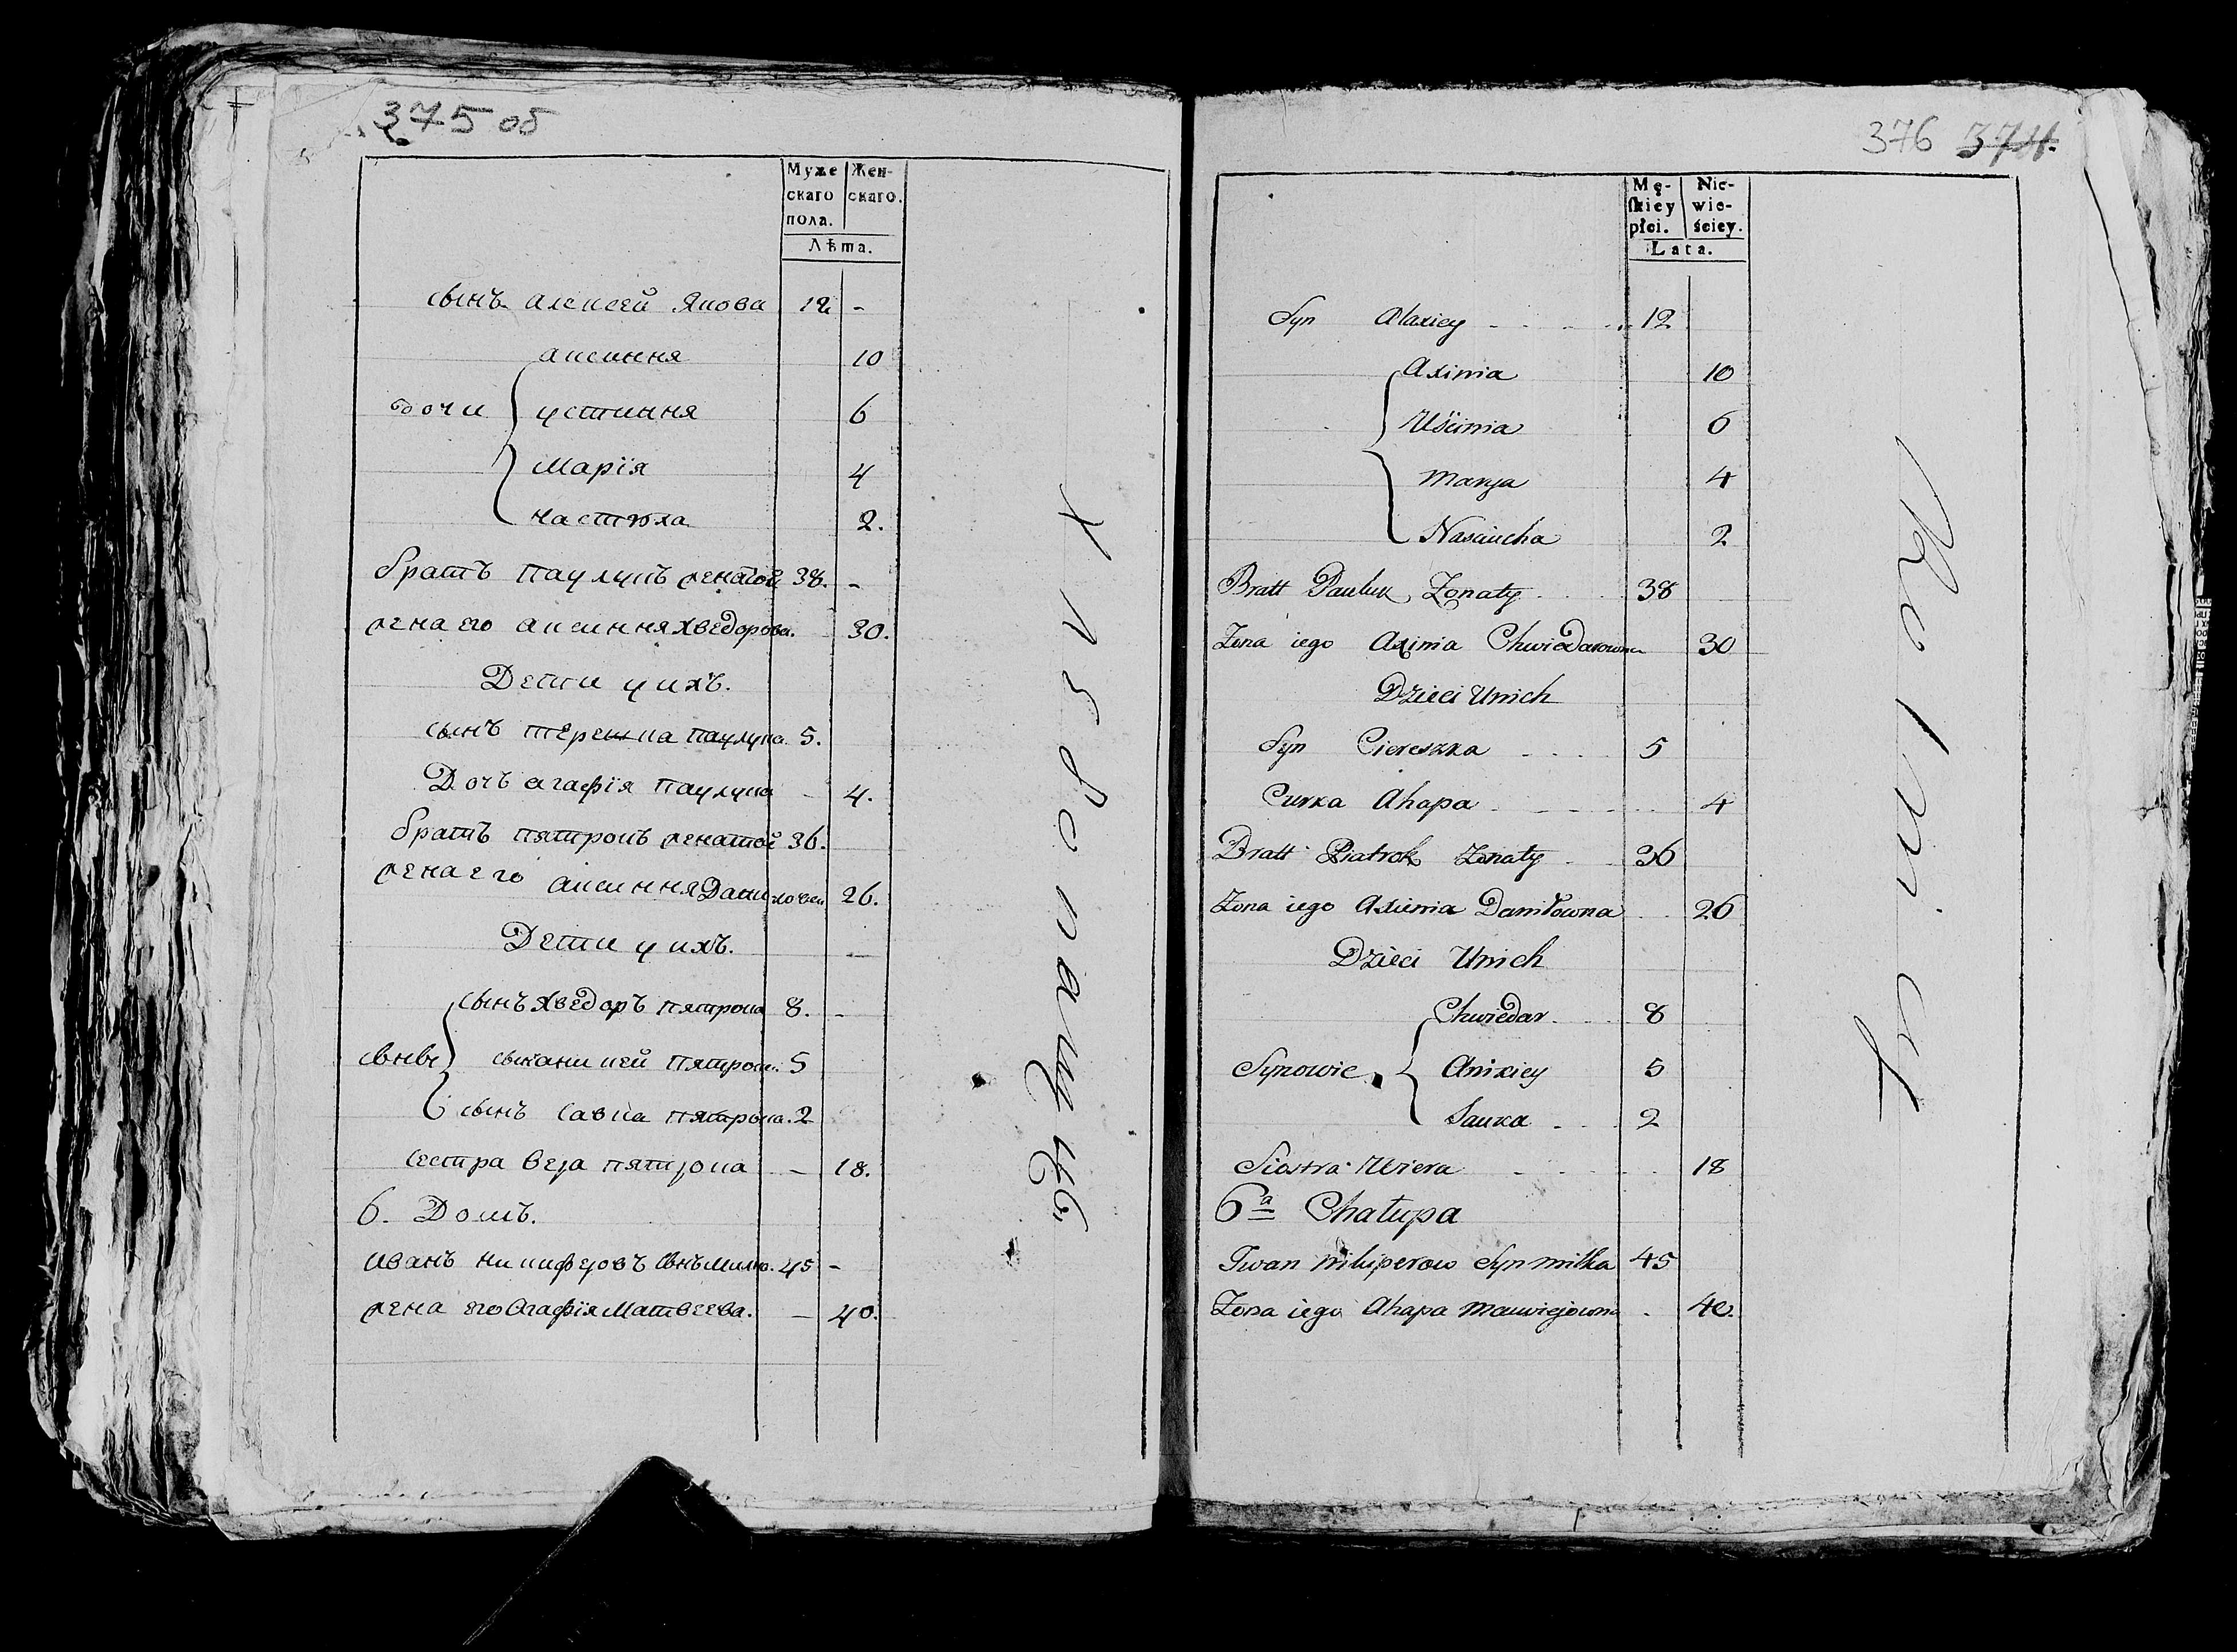 375 об
Муже
скаго
пола.
Жен-
скаго.
Лѣта.
сынъ алексей Якова 12 -
аксиння 10
дочи устиння 6
Марїя 4
настуха 2.
братъ паулукъ женатой 38. -
жена его аксиння хведорова. 30.
Дети у ихъ.
сынъ терешка паулука 5.
Дочъ агафїя паулука - 4.
братъ пятрокъ женатой 36.
жена его аксиння Данилова 26.
Дети у ихъ. -
сынъ хведоръ пятрока 8. -
сынъ аникей пятрок. 5
сынъ савка пятрока. 2
сестра вера пятрока - 18.
6. Домъ.
иванъ никифоровъ снъ милко. 45 -
жена его Огафїя Матвеева. - 40.
376 374.
Mę-
skiey
płci.
Nie-
wie-
ściey.
Lata.
Syn Alaxiey 12
Axinia 10
Uścinia 6
Marya 4
Nasciucha 2
Bratt Pauluk Zonaty 38
Zona iego Axinia Chwiedarowna 30
Dzieci Unich
Syn Ciereszka 5
Curka Ahapa 4
Bratt Piatrok Zonaty 36
Zona iego Axinia Daniłowna 26
Dzieci Unich
Chwiedar 8
Synowie Anikiey 5
Sauka 2
Siostra Wiera 18
6a Chałupa
Iwan Nikiperow Syn Miłka 45
Zona iego Ahapa Mawiejowna 40.